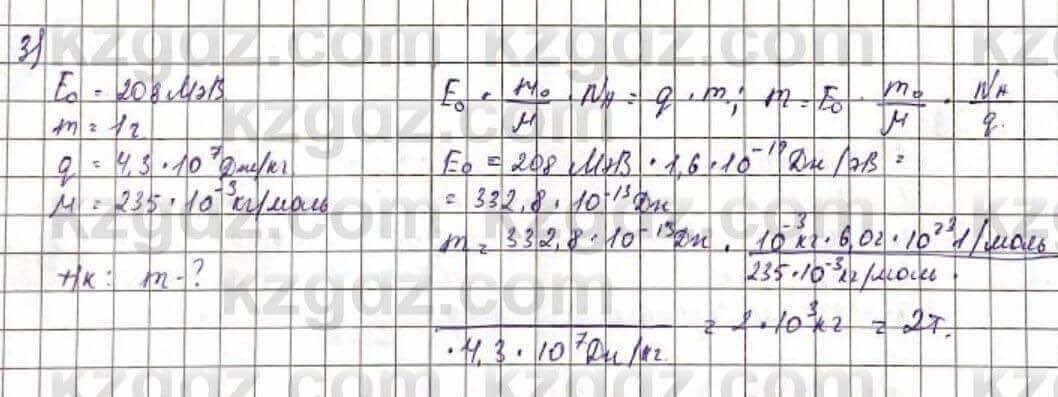 3)
E₀ = 208 МэВ
m = 1 г
q = 4,3 · 10⁷ Дж/кг
M = 235 · 10⁻³ кг/моль
Т/к: m - ?
E₀ · m₀/M · Nₐ = q · m; m = E₀ · m₀/M · Nₐ/q.
E₀ = 208 МэВ · 1,6 · 10⁻¹⁹ Дж/эВ =
= 332,8 · 10⁻¹³ Дж
m = 332,8 · 10⁻¹³ Дж · 10⁻³ кг · 6,02 · 10²³ 1/моль
235 · 10⁻³ кг/моль ·
· 4,3 · 10⁷ Дж/кг. = 2 · 10³ кг = 2т.
kzgdz.com